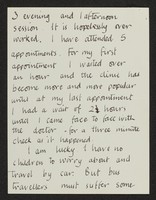 1 evening and 1 afternoon
session. It is hopelessly over-
worked. I have attended 5
appointments. For my first
appointment I waited over
an hour and the clinic has
become more and more popular
until at my last appointment
I had a wait of 2½ hours
until I came face to face with
the doctor - for a three minute
check as it happened.
I am lucky I have no
children to worry about and
travel by car. But bus
travellers must suffer some